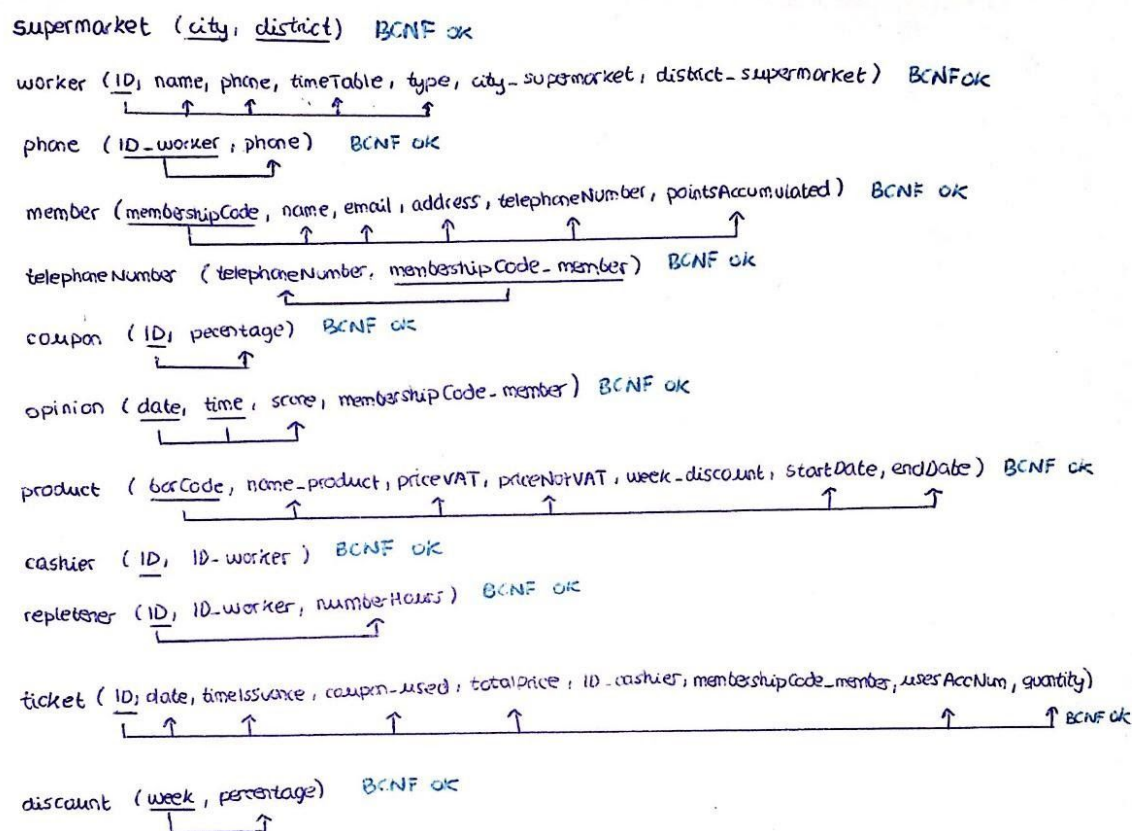 supermarket (city, district) BCNF OK
worker (ID, name, phone, timeTable, type, city_supermarket, district_supermarket) BCNF OK
phone (ID_worker, phone) BCNF OK
member (membershipCode, name, email, address, telephoneNumber, pointsAccumulated) BCNF OK
telephoneNumber (telephoneNumber, membershipCode_member) BCNF OK
coupon (ID, pecentage) BCNF OK
opinion (date, time, score, membershipCode_member) BCNF OK
product (barCode, name_product, priceVAT, priceNotVAT, week_discount, startDate, endDate) BCNF OK
cashier (ID, ID_worker) BCNF OK
repletener (ID, ID_worker, numberHours) BCNF OK
ticket (ID, date, timeIssuance, coupon_used, totalPrice, ID_cashier, membershipCode_member, usesAccNum, quantity)
BCNF OK
discount (week, percentage) BCNF OK